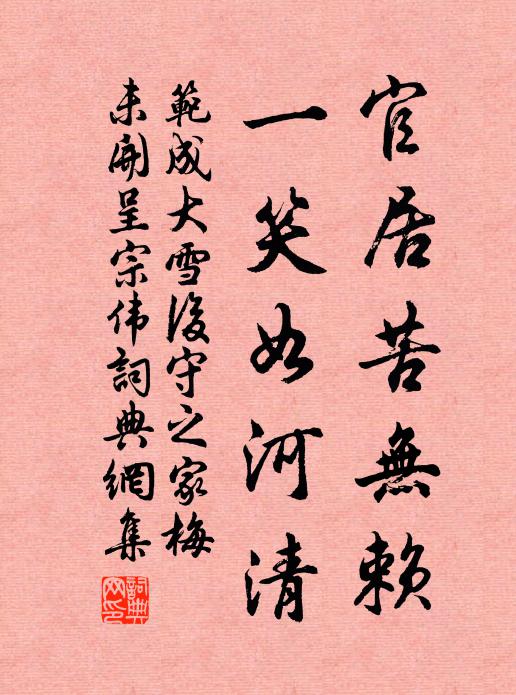 官居苦無賴
一笑如河清
範成大雪後守之家梅
未開呈宗伟詞典網集
詞典
网印